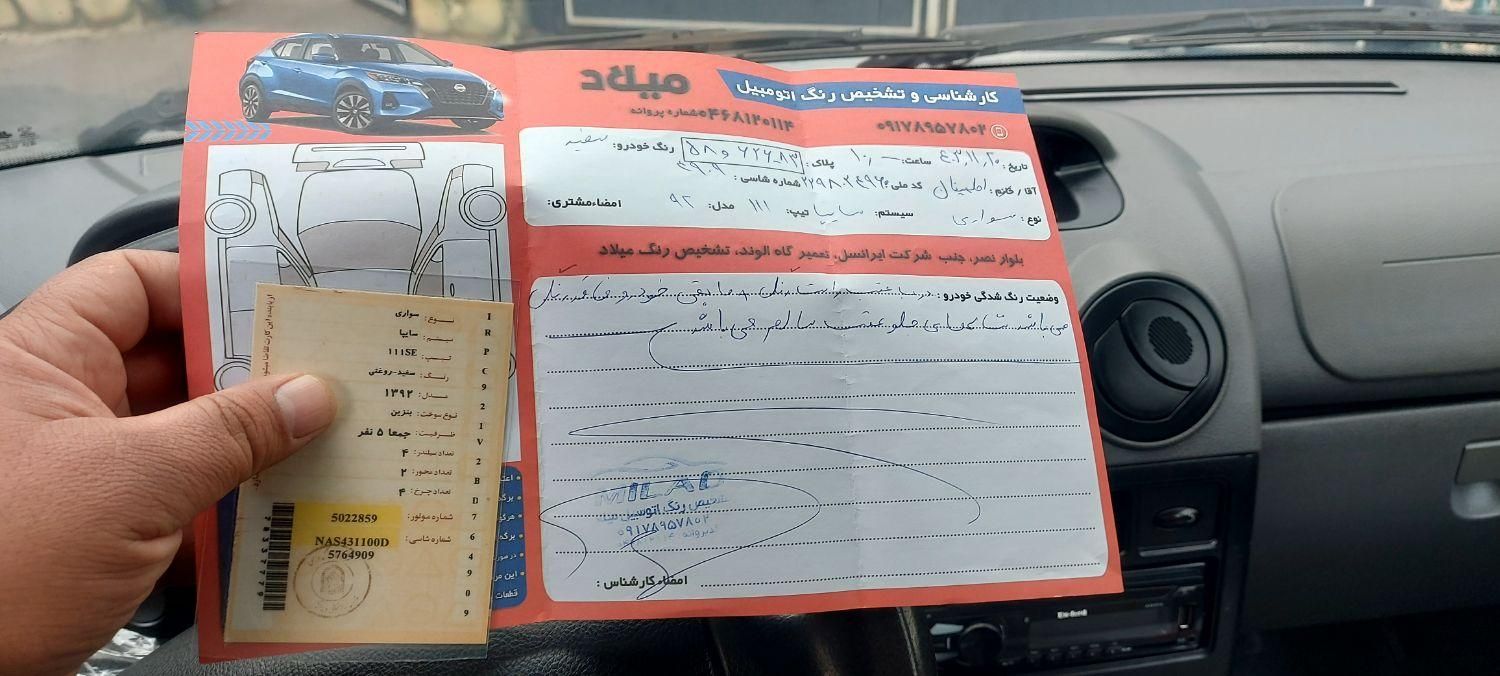 کارشناسی و تشخیص رنگ اتومبیل
میلاد
۰۹۱۷۸۹۵۷۸۰۲
شماره پروانه ۰۴۶۸۱۲۰۱۱۴
تاریخ: ۴۰۳,۱۱,۲۰ ساعت: ۱۰,۰۰ پلاک: رنگ خودرو: سفید
آقا / خانم: اطمینان کد ملی: شماره شاسی: ۴۹۰۹
نوع: سواری سیستم: سایپا تیپ: ۱۱۱ مدل: ۹۲ امضاء مشتری:
بلوار نصر، جنب شرکت ایرانسل، تعمیر گاه الوند، تشخیص رنگ میلاد
وضعیت رنگ شدگی خودرو: درب عقب راست رنگ و مابقی خودرو فاقد رنگ
می باشد شاسی های جلو عقب سالم می باشد
MILAD
تشخیص رنگ اتومبیل میلاد
۰۹۱۷۸۹۵۷۸۰۲
امضاء کارشناس:
نوع: سواری
سیستم: سایپا
تیپ: 111SE
رنگ: سفید-روغنی
مدل: ۱۳۹۲
نوع سوخت: بنزین
ظرفیت: جمعا ۵ نفر
تعداد سیلندر: ۴
تعداد محور: ۲
تعداد چرخ: ۴
شماره موتور: 5022859
شماره شاسی: NAS431100D
5764909
I
R
P
C
9
2
1
V
2
B
D
7
6
4
9
0
9